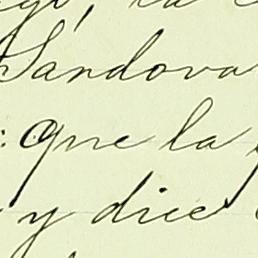 Sandova
: que la
y dice